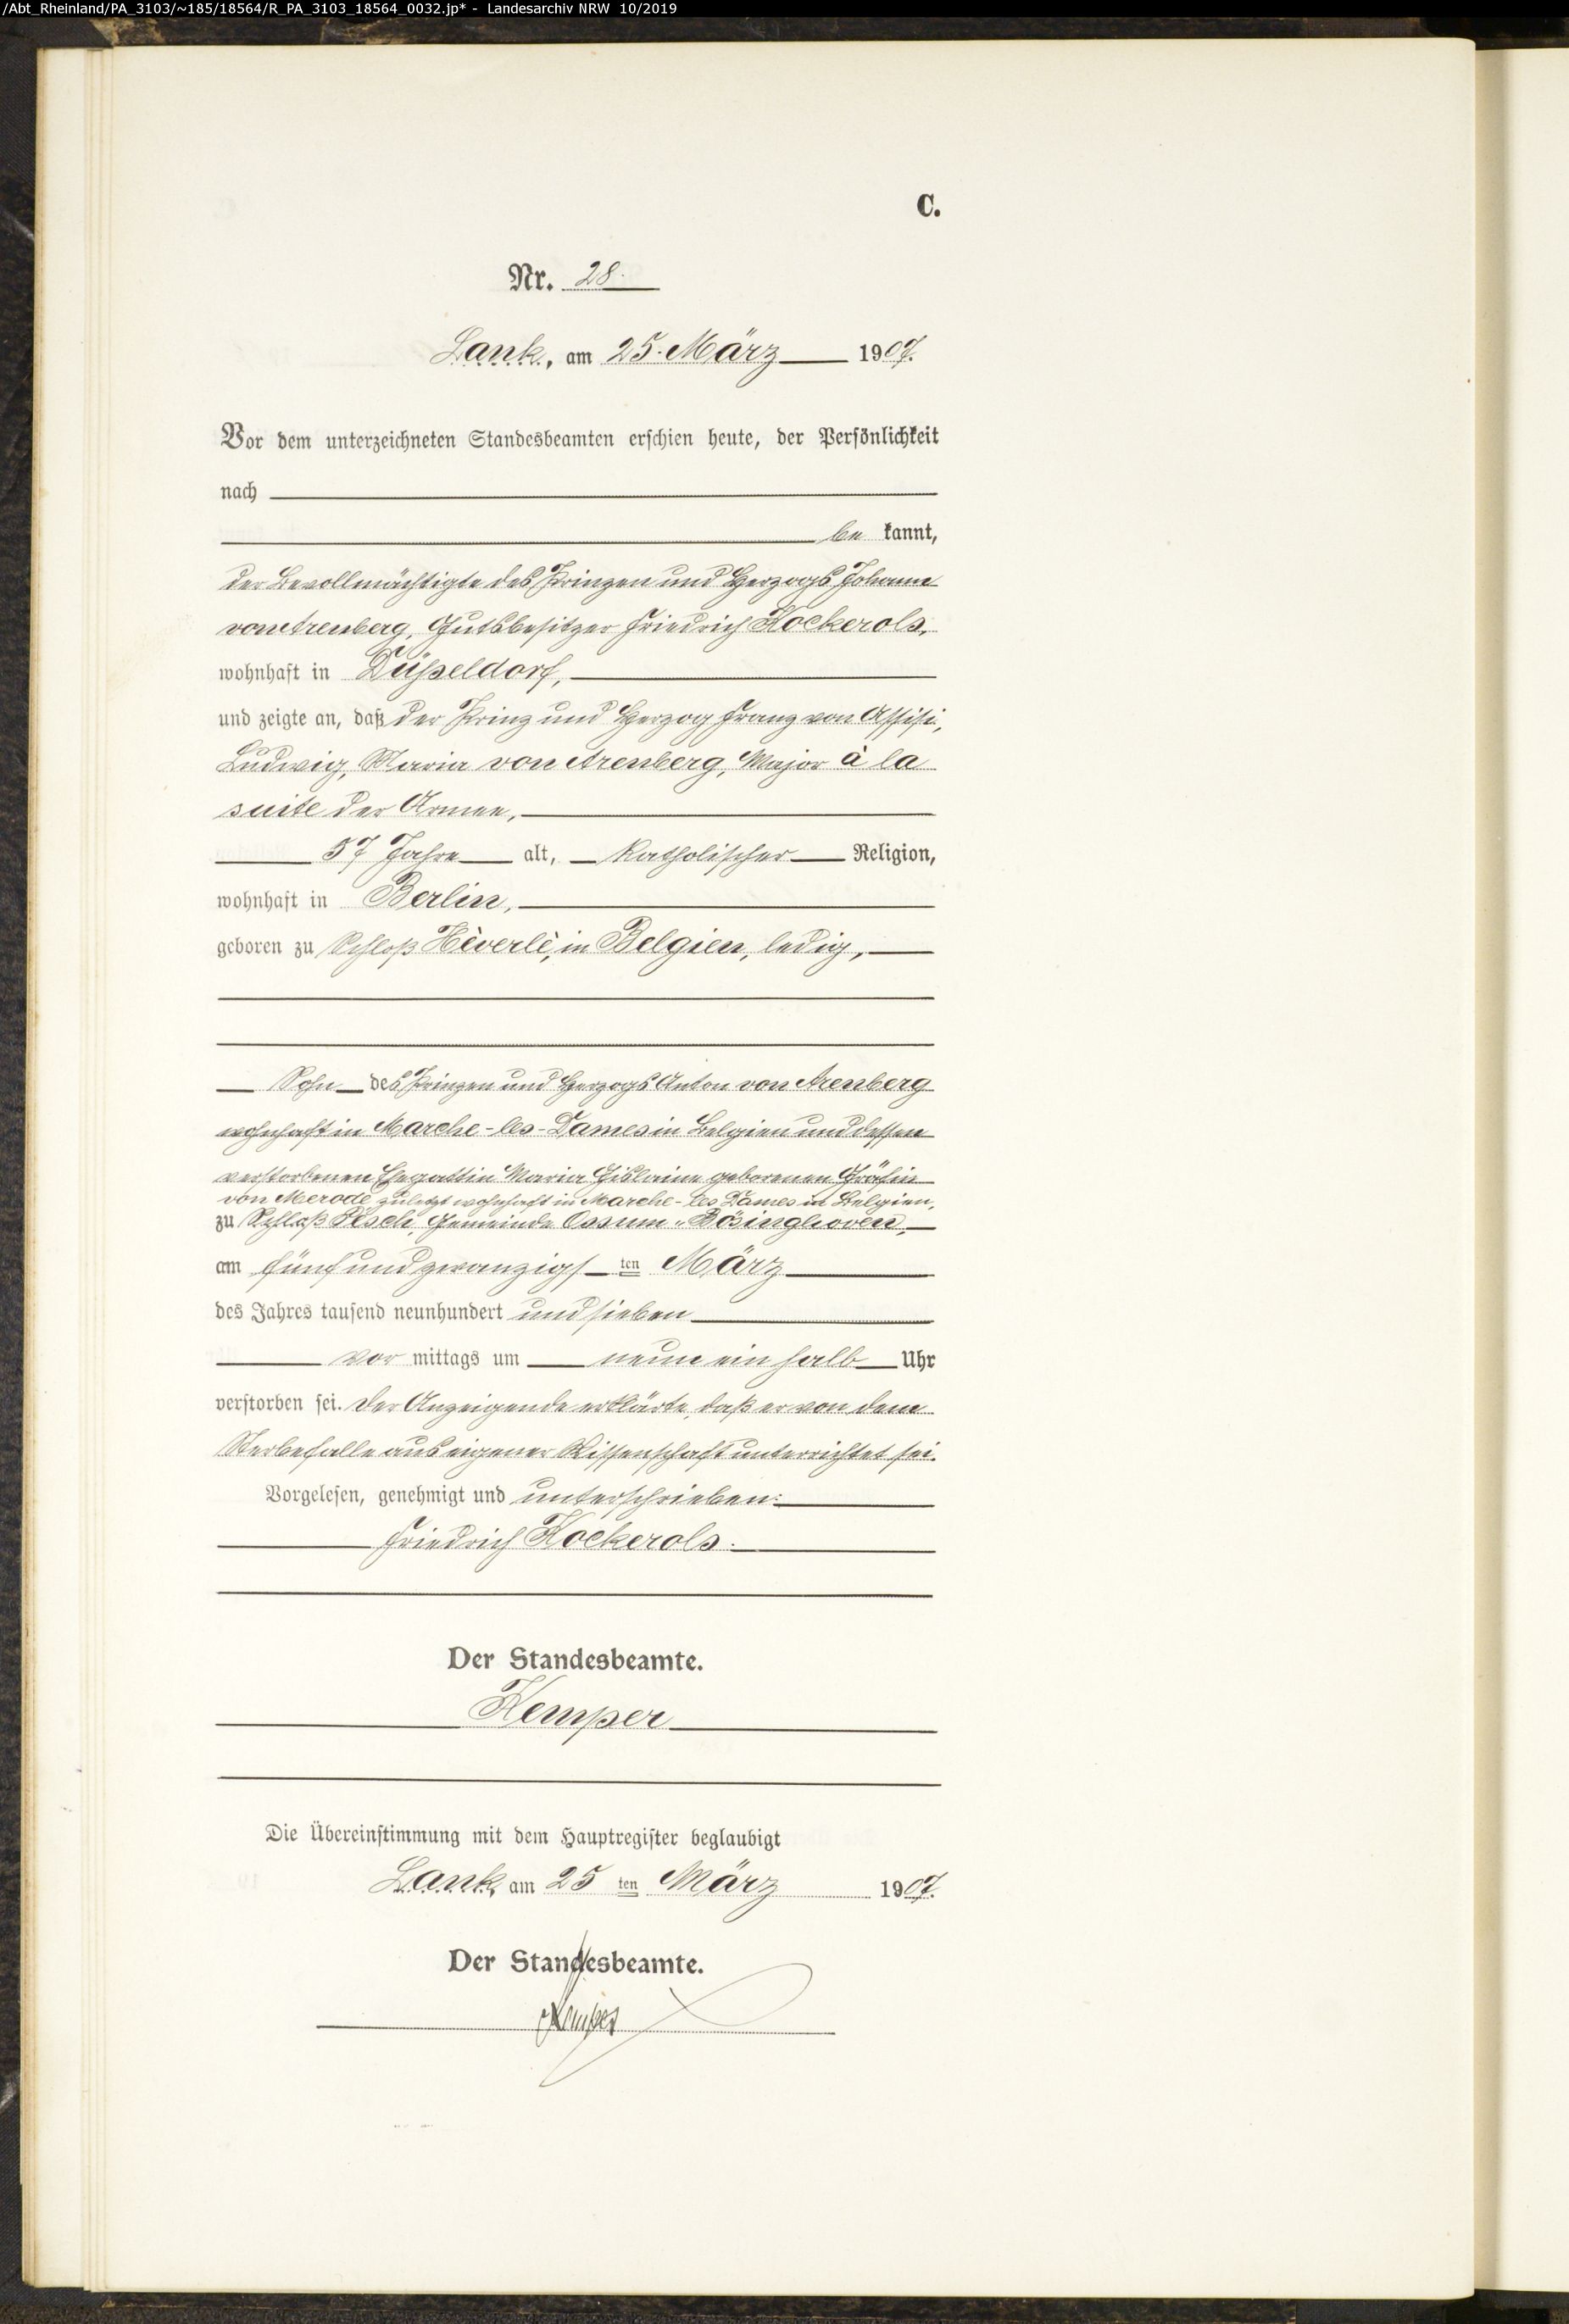 /Abt_Rheinland/PA_3103/~185/18564/R_PA_3103_18564_0032.jp* - Landesarchiv NRW 10/2019
C.
Nr. 28.
Lank, am 25. März 1907.
Vor dem unterzeichneten Standesbeamten erschien heute, der Persönlichkeit
nach
be kannt,
der Bevollmächtigte des Prinzen und Herzogs Johann
von Arenberg, Gutsbesitzer Friedrich Kockerols,
wohnhaft in Düsseldorf,
und zeigte an, daß der Prinz und Herzog Franz von Assisi,
Ludwig, Maria von Arenberg, Major à la
suite der Armee,
57 Jahre alt, katholischer Religion,
wohnhaft in Berlin,
geboren zu Schloß Hèverlè, in Belgien, ledig,
Sohn des Prinzen und Herzogs Anton von Arenberg
wohnhaft in Marche-les-Dames in Belgien und dessen
verstorbenen Ehegattin Maria Gislaine geborenen Gräfin
von Merode zuletzt wohnhaft in Marche-les Dames in Belgien,
zu Schloß Pesch, Gemeinde Ossum-Bösinghoven,
am fünfundzwanzigs ten März
des Jahres tausend neunhundert und sieben
vor mittags um neun ein halb Uhr
verstorben sei. Der Anzeigende erklärte, daß er von dem
Sterbefalle aus eigener Wissenschaft unterrichtet sei.
Vorgelesen, genehmigt und unterschrieben:
Friedrich Kockerols.
Der Standesbeamte.
Kemper
Die Übereinstimmung mit dem Hauptregister beglaubigt
Lank, am 25 ten März 1907.
Der Standesbeamte.
Kemper